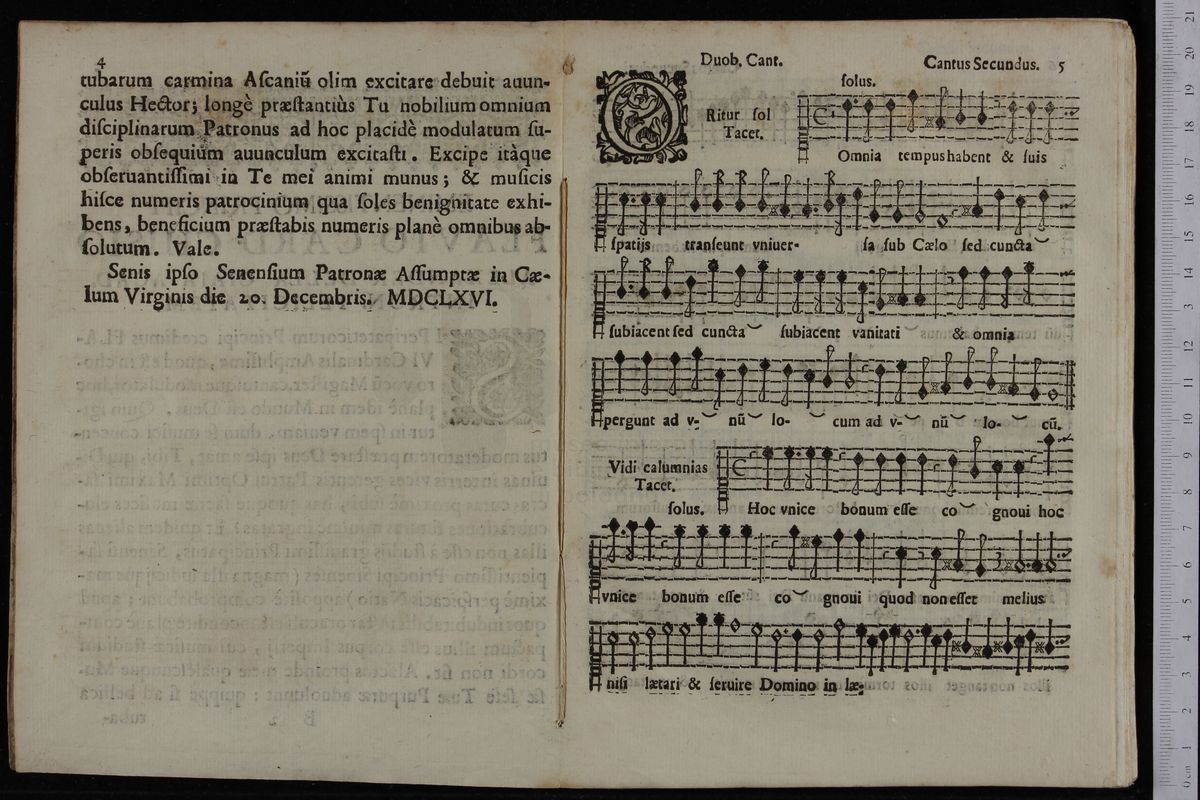 4
tubarum carmina Aſcaniũ olim excitare debuit auun-
culus Hector; longè præſtantiùs Tu nobilium omnium
diſciplinarum Patronus ad hoc placidè modulatum ſu-
peris obſequiũm auunculum excitaſti. Excipe itàque
obſeruantiſſimi in Te mei animi munus; & muſicis
hiſce numeris patrocinium qua ſoles benignitate exhi-
bens, beneficium præſtabis numeris planè omnibus ab-
ſolutum. Vale.
Senis ipſo Senenſium Patronæ Aſſumptæ in Cæ-
lum Virginis die 20. Decembris. MDCLXVI.
Duob. Cant.
Cantus Secundus. 5
O
Ritur ſol
Tacet.
ſolus.
Omnia tempus habent & ſuis
ſpatijs tranſeunt vniuer- ſa ſub Cælo ſed cuncta
ſubiacent ſed cuncta ſubiacent vanitati & omnia
pergunt ad v- nũ lo- cum ad v- nũ lo- cũ.
Vidi calumnias
Tacet.
ſolus.
Hoc vnice bonum eſſe co gnoui hoc
vnice bonum eſſe co gnoui quod non eſſet melius
niſi lætari & ſeruire Domino in læ-